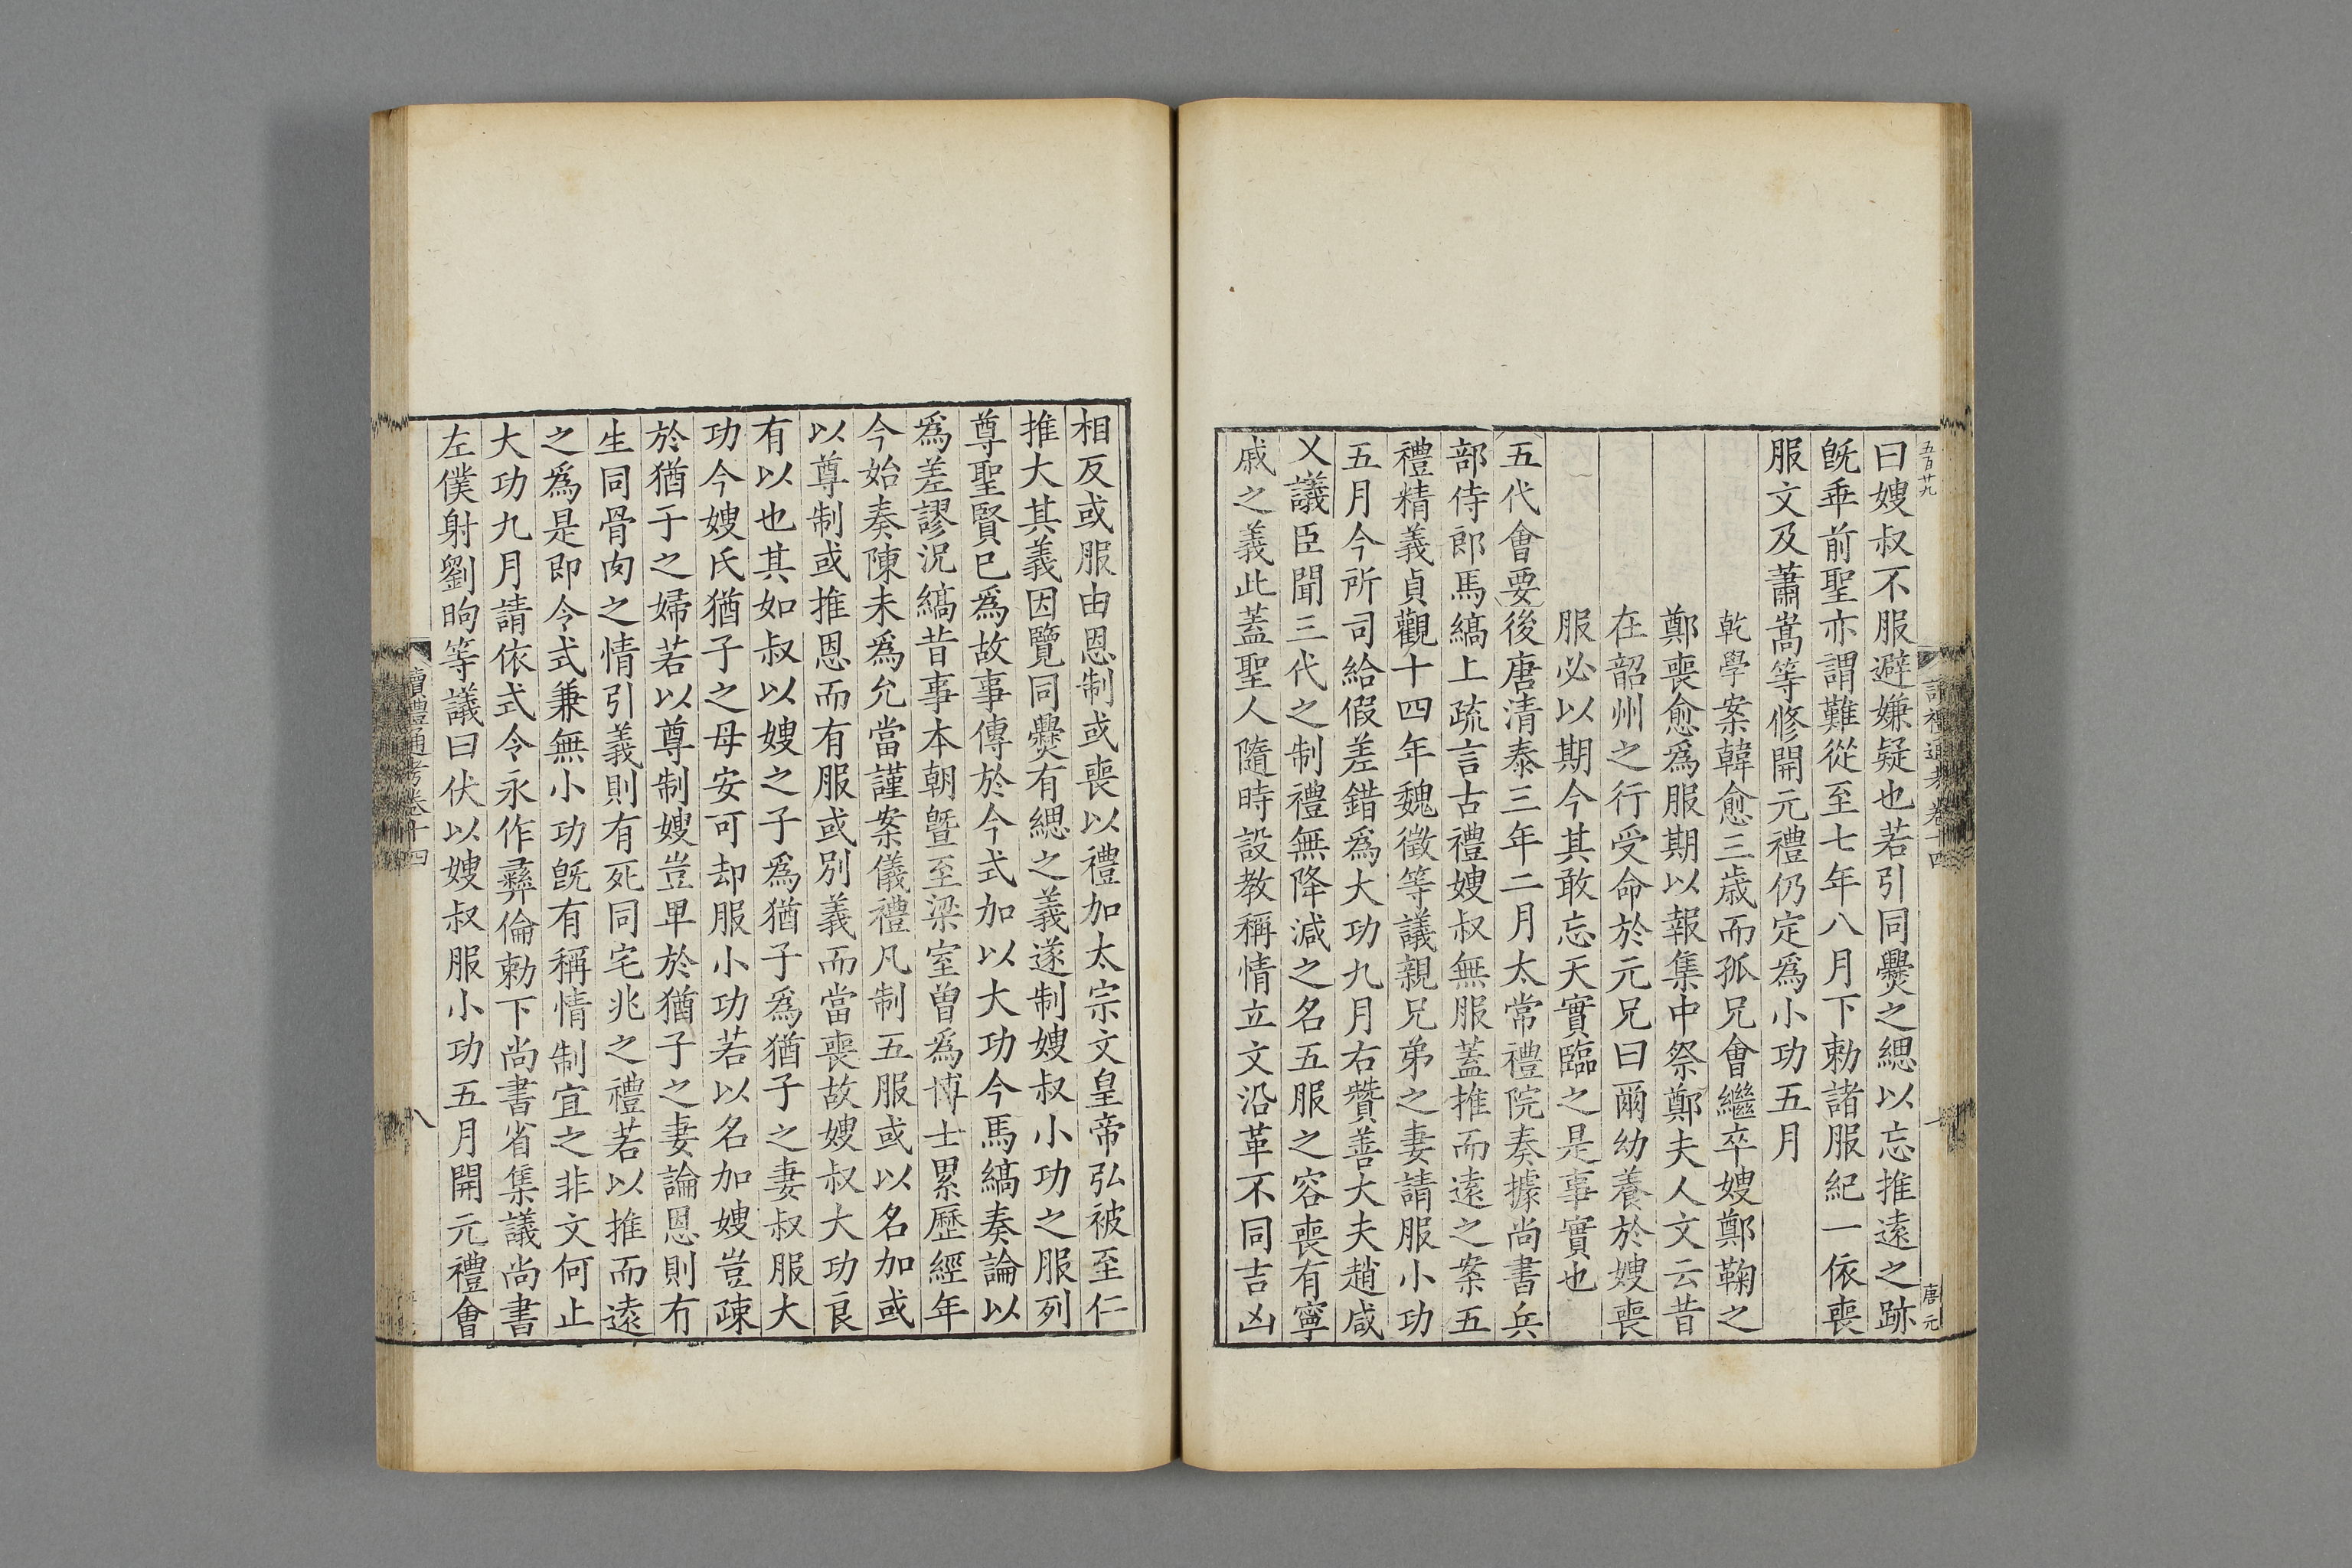 五百廿九
曰嫂叔不服避嫌疑也若引同爨之緦以忘推遠之跡
旣乖前聖亦謂難從至七年八月下勅諸服紀一依喪
服文及蕭嵩等修開元禮仍定爲小功五月
乾學案韓愈三歲而孤兄會繼卒嫂鄭鞠之
鄭喪愈爲服期以報集中祭鄭夫人文云昔
在韶州之行受命於元兄曰爾幼養於嫂喪
服必以期今其敢忘天實臨之是事實也
五代會要後唐清泰三年二月太常禮院奏據尚書兵
部侍郎馬縞上疏言古禮嫂叔無服蓋推而遠之案五
禮精義貞觀十四年魏徵等議親兄弟之妻請服小功
五月今所司給假差錯爲大功九月右贊善大夫趙咸
乂議臣聞三代之制禮無降減之名五服之容喪有寧
戚之義此蓋聖人隨時設教稱情立文沿革不同吉凶
唐元
相反或服由恩制或喪以禮加太宗文皇帝弘被至仁
推大其義因覽同爨有緦之義遂制嫂叔小功之服列
尊聖賢已爲故事傳於今式加以大功今馬縞奏論以
爲差謬況縞昔事本朝曁至梁室曾爲博士累歷經年
今始奏陳未爲允當謹案儀禮凡制五服或以名加或
以尊制或推恩而有服或別義而當喪故嫂叔大功良
有以也其如叔以嫂之子爲猶子爲猶子之妻叔服大
功今嫂氏猶子之母安可却服小功若以名加嫂豈疎
於猶子之婦若以尊制嫂豈卑於猶子之妻論恩則有
生同骨肉之情引義則有死同宅兆之禮若以推而遠
之爲是即令式兼無小功旣有稱情制宜之非文何止
大功九月請依式令永作彝倫勅下尚書省集議尚書
左僕射劉昫等議曰伏以嫂叔服小功五月開元禮會
讀禮通考卷十四
八